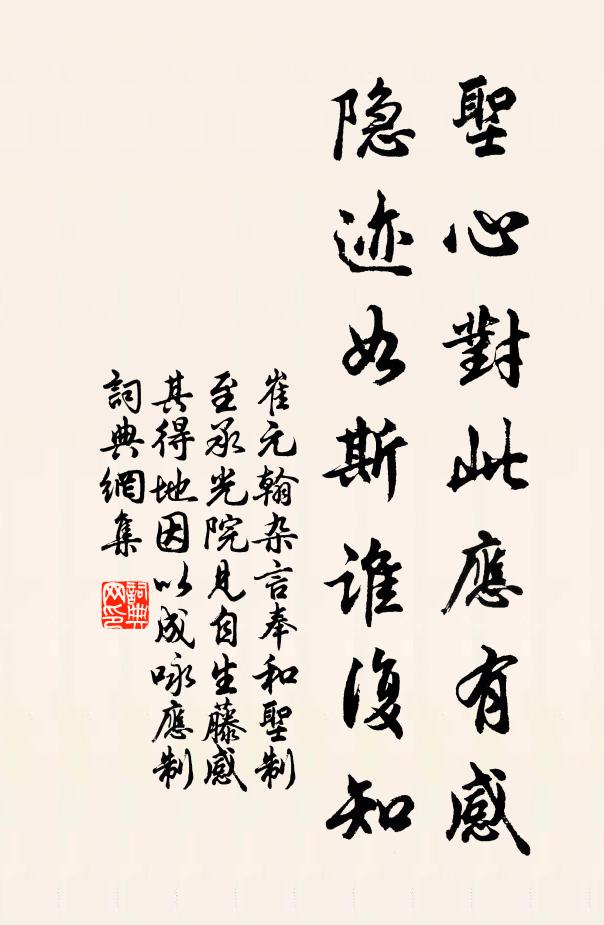 聖心對此應有感
隐迹如斯谁復知
崔元翰杂言奉和聖制
至承光院見自生藤感
其得地因以成咏應制
詞典網集
詞典
网印